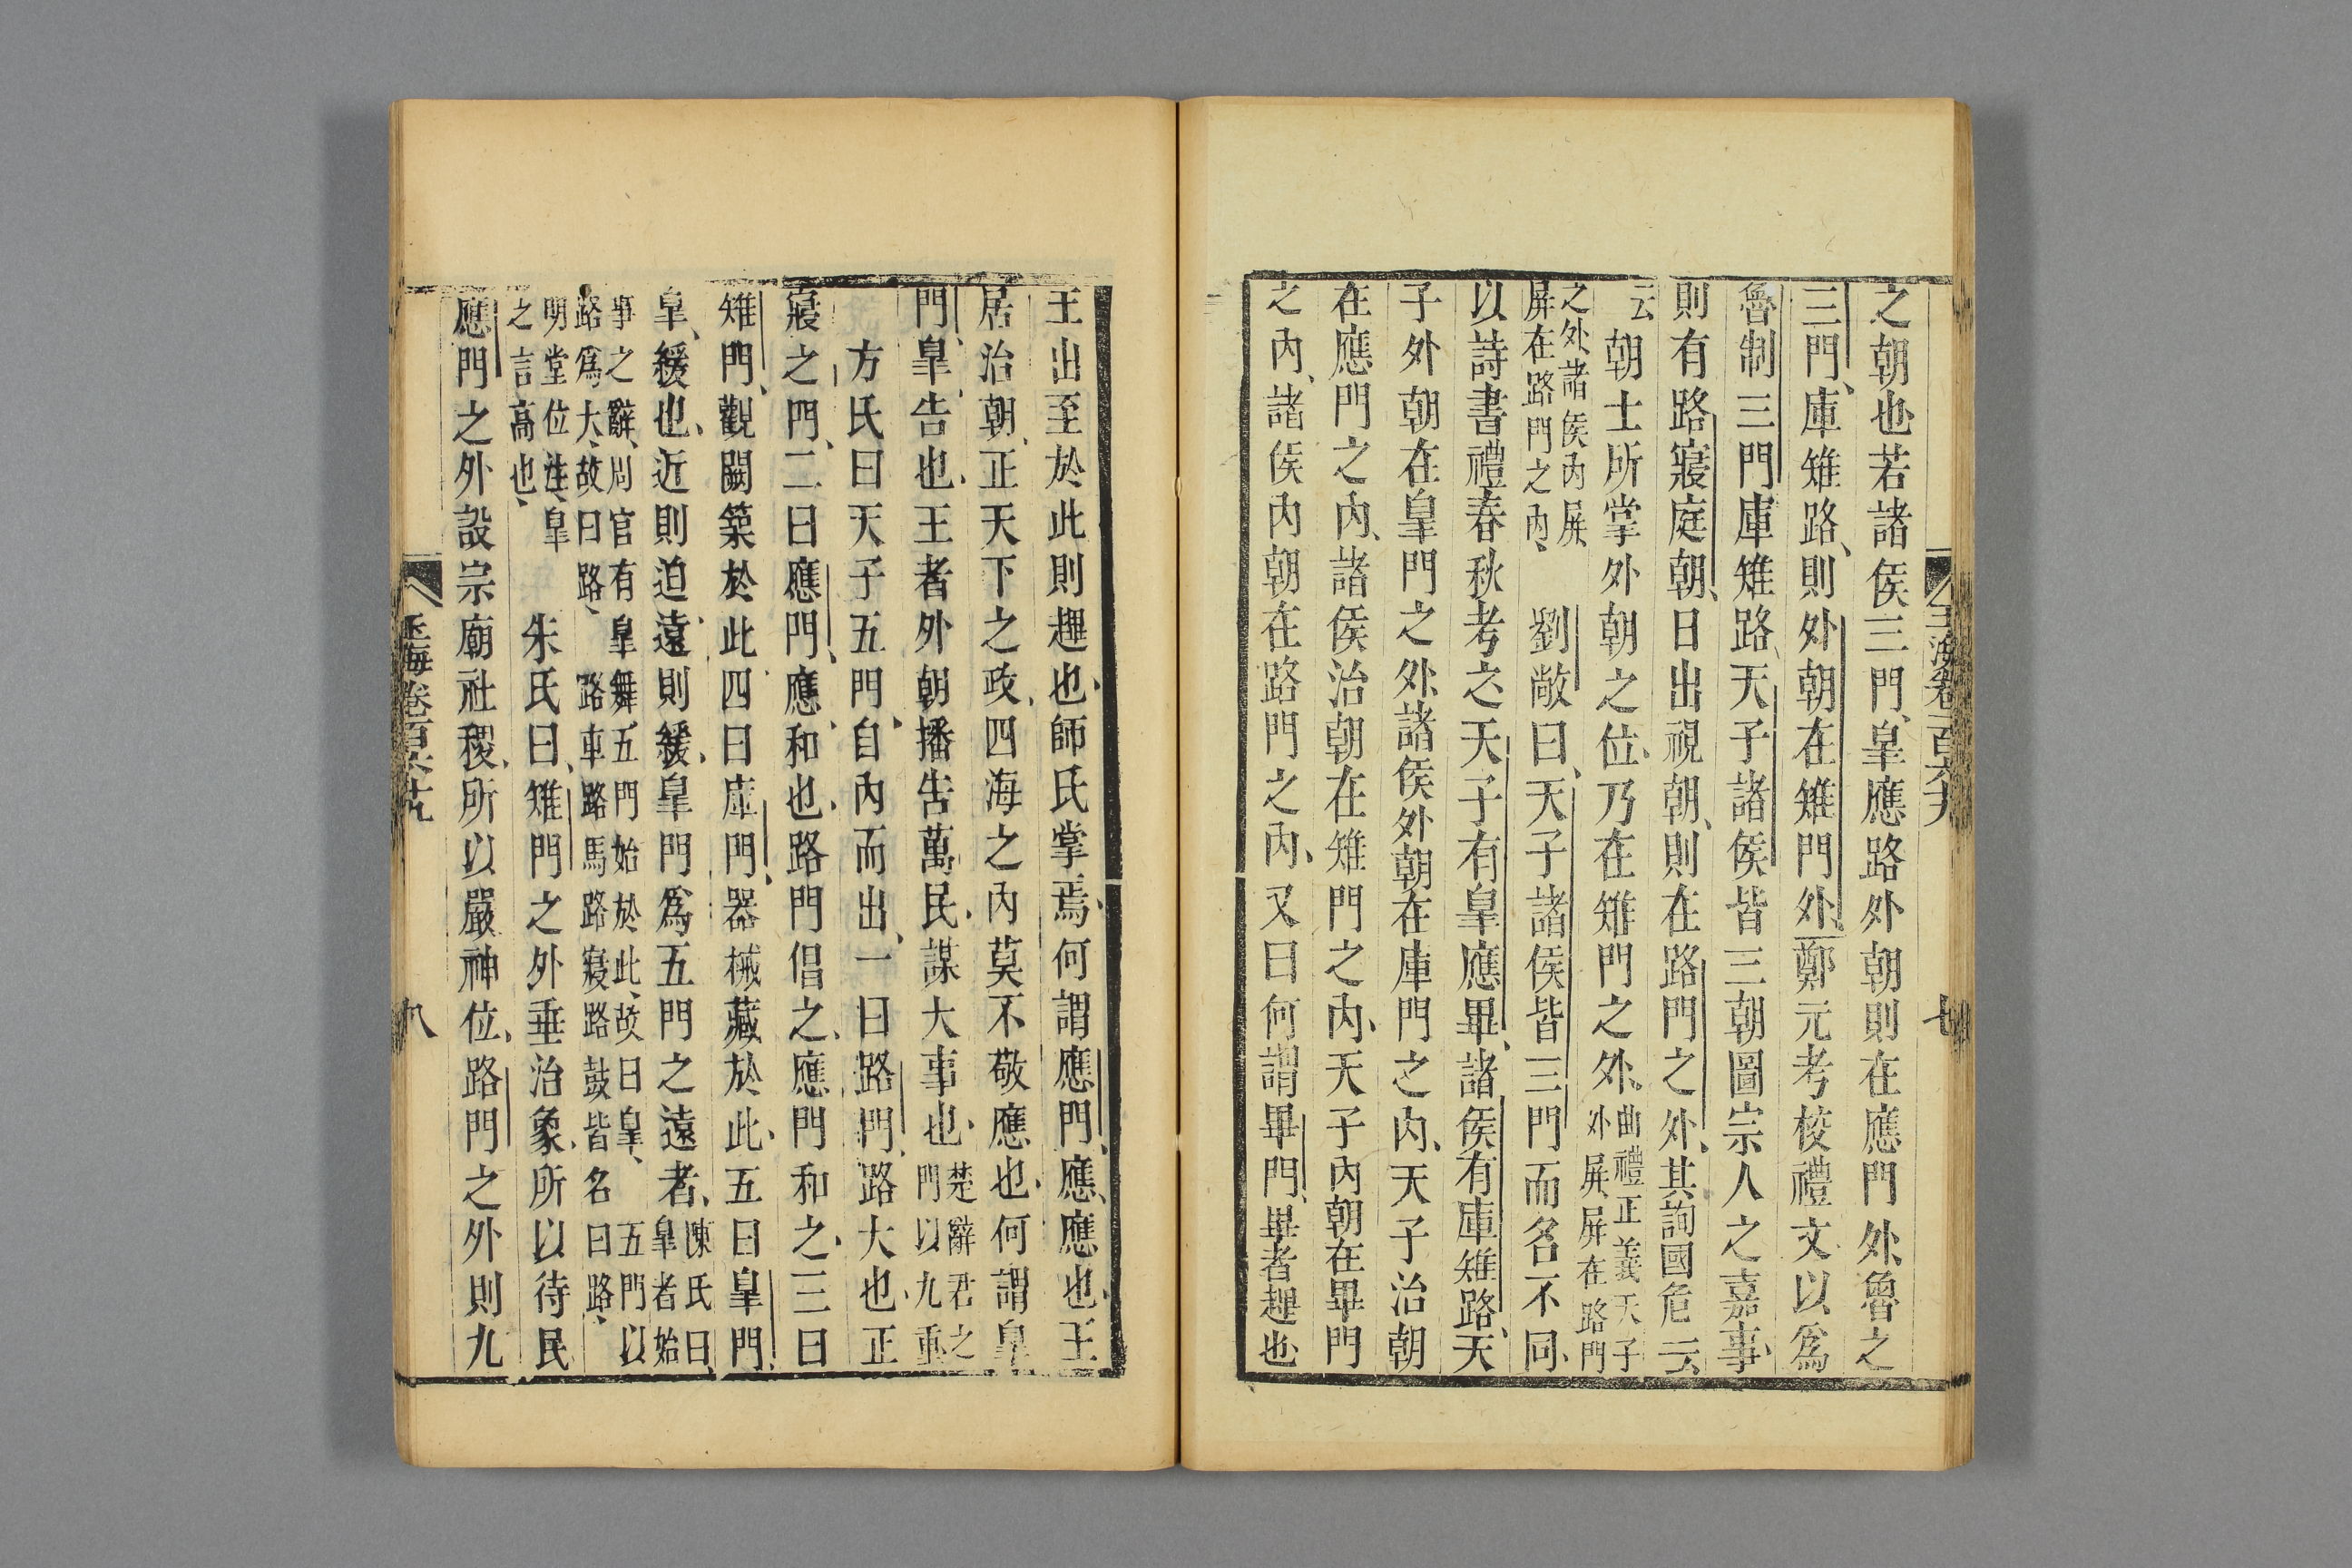 玉海卷一百六十九
七
之朝也若諸侯三門、皐應路外朝則在應門外、魯之
三門、庫雉路、則外朝在雉門外、鄭元考校禮文以爲
魯制三門庫雉路、天子諸侯皆三朝圖宗人之嘉事、
則有路寢庭朝、日出視朝、則在路門之外、其詢國危云
云
朝士所掌外朝之位、乃在雉門之外、
曲禮正義天子
外屏、屏在路門
之外諸侯內屏
屏在路門之內、
劉敞曰、天子諸侯皆三門而名不同、
以詩書禮春秋考之天子有皐應畢、諸侯有庫雉路、天
子外朝在皐門之外諸侯外朝在庫門之內、天子治朝
在應門之內、諸侯治朝在雉門之內、天子內朝在畢門
之內、諸侯內朝在路門之內、又曰何謂畢門、畢者趩也
王出至於此則趩也、師氏掌焉、何謂應門、應、應也、王
居治朝、正天下之政、四海之內莫不敬應也、何謂皐
門、皐、告也、王者外朝播告萬民、謀大事也、
楚辭君之
門以九重
方氏曰天子五門、自內而出、一曰路門、路大也、正
寢之門、二曰應門、應、和也、路門倡之、應門和之、三曰
雉門、觀闕築於此、四曰庫門、器械藏於此、五曰皐門、
皐、緩也、近則迫遠、則緩、皐門爲五門之遠者、
陳氏曰、
皐者始
事之辭、周官有皐舞五門始於此、故曰皐、
路爲大、故曰路、
路車路馬路寢路鼓皆名曰路、
五門以
明堂位注、皐
之言高也、
朱氏曰、雉門之外垂治象、所以待民
應門之外設宗廟社稷、所以嚴神位、路門之外則九
玉海卷百六十九
八